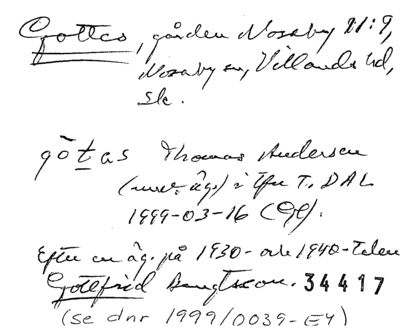 Gottes, gården Nosaby 21:9,
Nosaby sn, Villands hd,
Sk.
gȍt̲as Thomas Andersen
(nuv. äg.) i tfn T., DAL
1999-03-16 (GG).
Efter en äg. på 1930- och 1940-talen
Gottfrid Bengtsson. 34417
(se dnr 1999/0039-EY)